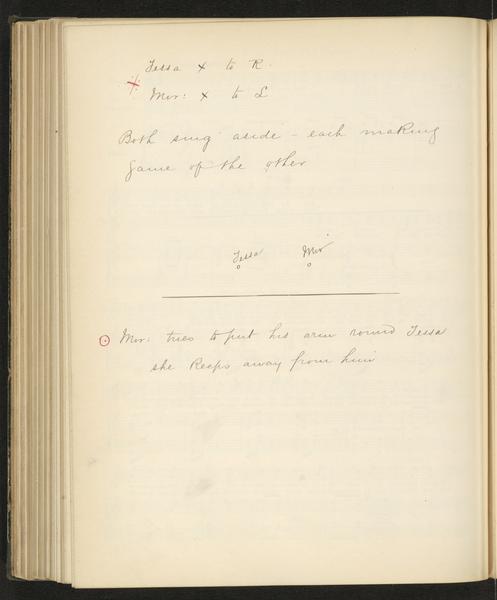 Tessa x to R.
Mor: x to L
Both sing aside - each making
game of the other
Tessa Mor
Mor: tries to put his arm round Tessa
she keeps away from him